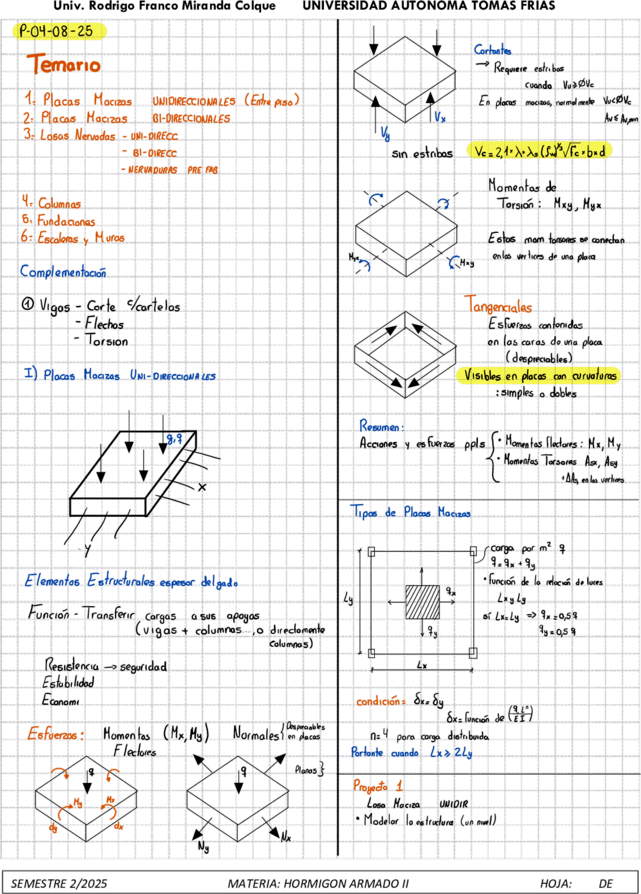 Univ. Rodrigo Franco Miranda Colque UNIVERSIDAD AUTONOMA TOMAS FRIAS
P-04-08-25
Temario
1: Placas Macizas UNIDIRECCIONALES (Entre piso)
2: Placas Macizas BI-DIRECCIONALES
3: Losas Nervadas - UNI-DIRECC
- BI-DIRECC
- NERVADURAS PRE FAB
4: Columnas
5: Fundaciones
6: Escaleras y Muros
Complementación
① Vigas - Corte c/cartelas
- Flechas
- Torsion
I) Placas Macizas UNI-DIRECCIONALES
g,q
x
y
Elementos Estructurales espesor delgado
Función - Transferir cargas a sus apoyos
(vigas + columnas..., o directamente
columnas)
Resistencia → seguridad
Estabilidad
Economi
Esfuerzos: Momentos (Mx, My)
Flectores
Normales } Despreciables
en placas
Planas }
q
My Mx
dy dx
q
Ny Nx
Cortantes
→ Requiere estribos
cuando Vu≥ØVc
En placas macizas, normalmente Vu<ØVc
Av≤Av,min
Vy Vx
sin estribos
Momentos de
Torsión: Mxy, Myx
Estos mom torsores se conectan
en los vertices de una placa
Myx Mxy
Tangenciales
Esfuerzos contenidos
en las caras de una placa
(despreciables)
Visibles en placas con curvaturas
: simples o dobles
Resumen:
Acciones y esfuerzos ppls { • Momentos flectores: Mx, My
• Momentos Torsores Asx, Asy
en los vertices
Tipos de Placas Macizas
carga por m² q
q=qx+qy
• función de la relación de luces
Lx y Ly
si Lx=Ly ⇒ qx=0,5q
qy=0,5q
Ly
qx
qy
Lx
condición= δx=δy
δx= función de (q L⁴/E I)
n=4 para carga distribuida
Portante cuando Lx≥2Ly
Proyecto 1
Losa Maciza UNIDIR
• Modelar la estructura (un nivel)
SEMESTRE 2/2025 MATERIA: HORMIGON ARMADO II HOJA: DE